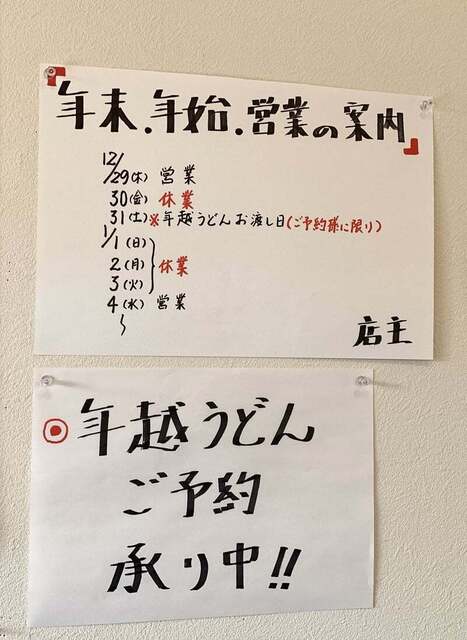 「年末.年始.営業の案内」
12/29(木) 営業
30(金) 休業
31(土)※年越うどんお渡し日(ご予約様に限り)
1/1(日)
2(月) 休業
3(火)
4(水) 営業
〜
店主
◎年越うどん
ご予約
承り中!!